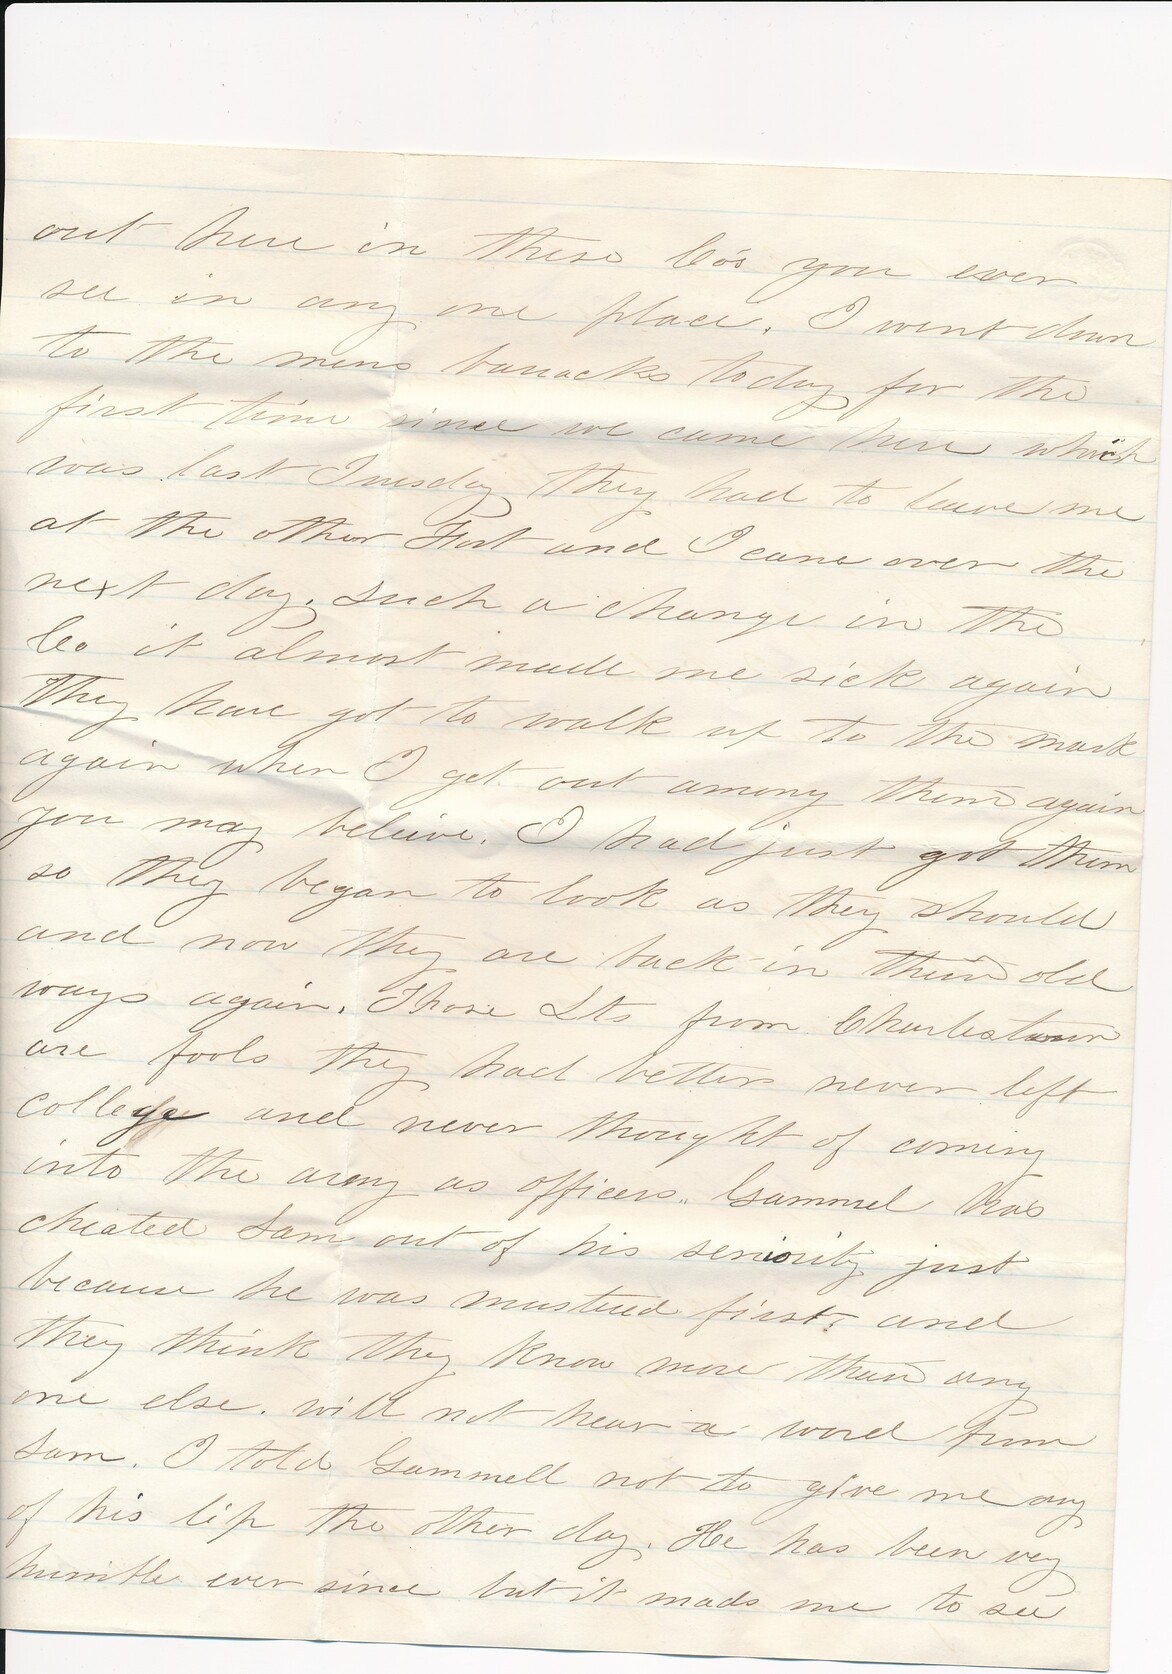 out here in these Co's you ever
see in any one place. I went down
to the mens barracks today for the
first time since we came here which
was last Tuesday they had to leave me
at the other Fort and I came over the
next day. Such a change in the
Co it almost made me sick again
They have got to walk up to the mark
again when I get out among them again
you may believe. I had just got them
so they began to look as they should
and now they are back in their old
ways again. Those Lts from Charlestown
are fools they had better never left
college and never thought of coming
into the army as officers. Gammel has
cheated Sam out of his seniority just
because he was mustered first, and
they think they know more than any
one else. will not hear a word from
Sam. I told Gammell not to give me any
of his lip the other day. He has been very
humble ever since but it mads me to see